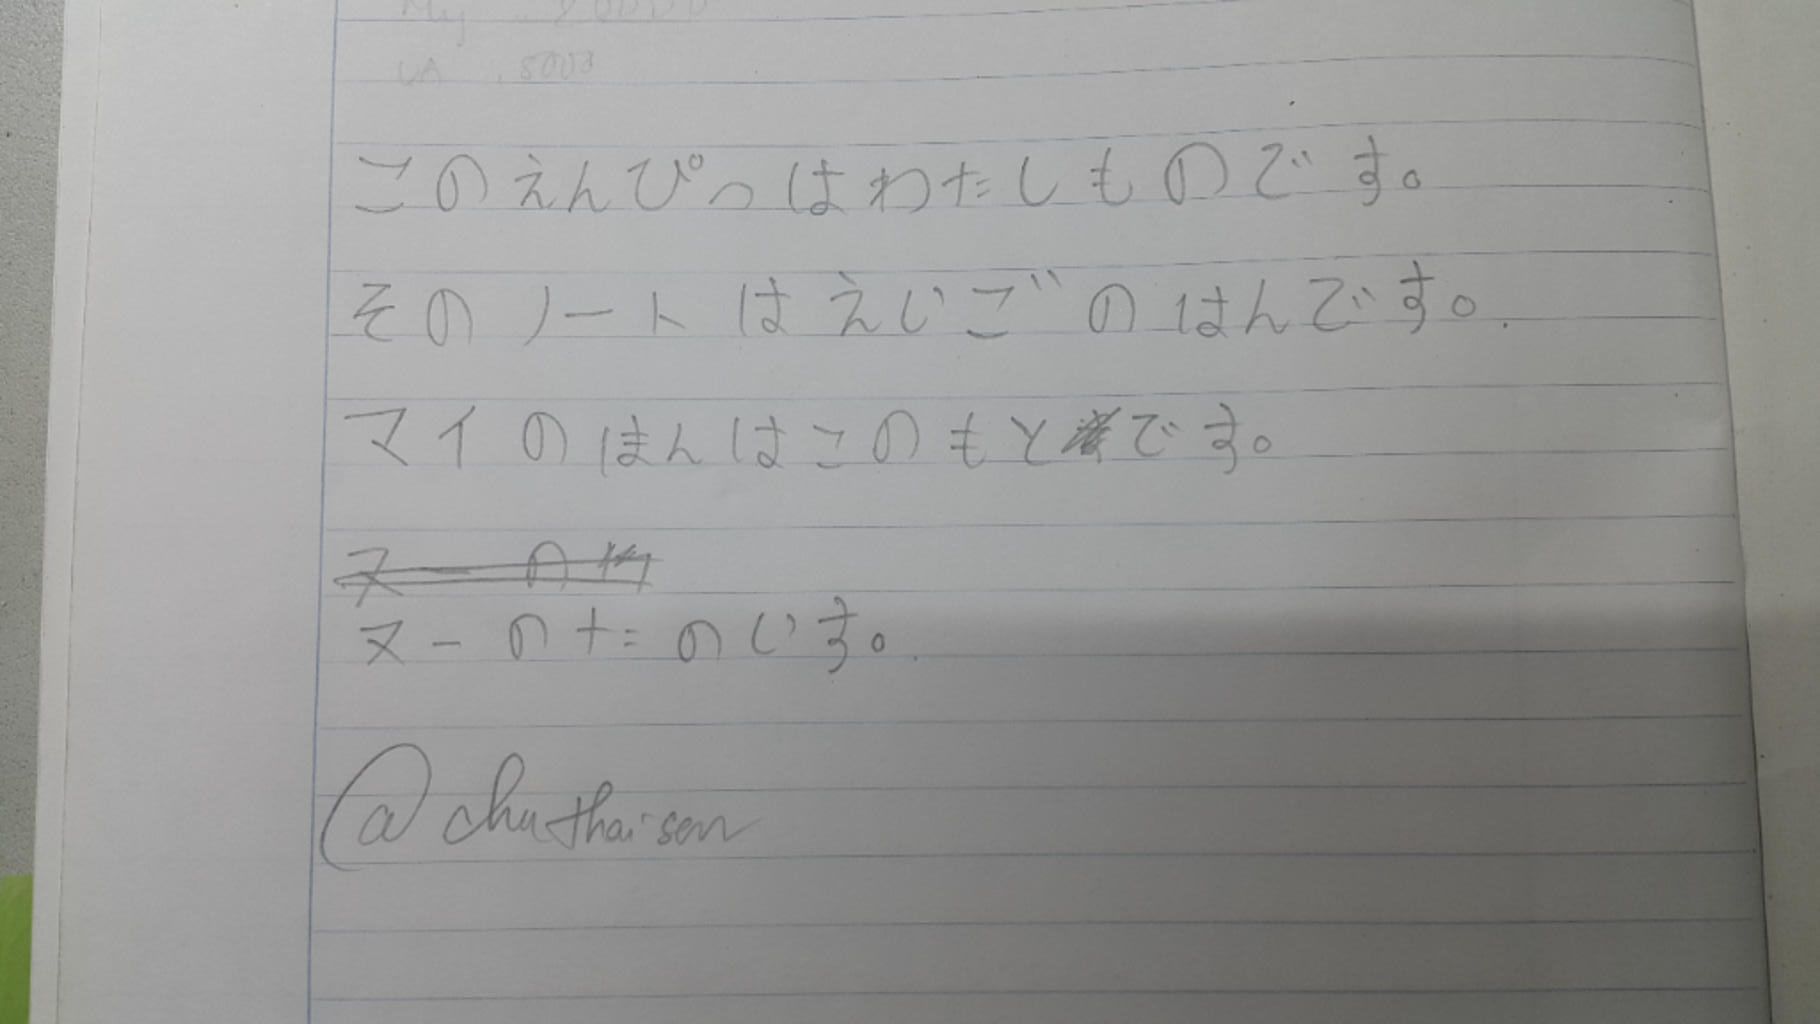 My 20000
UA 5003
このえんぴつはわたしものです。
そのノートはえいごのはんです。
マイのほんはこのもとです。
ヌーの
ヌーのたのいす。
@chuthaison